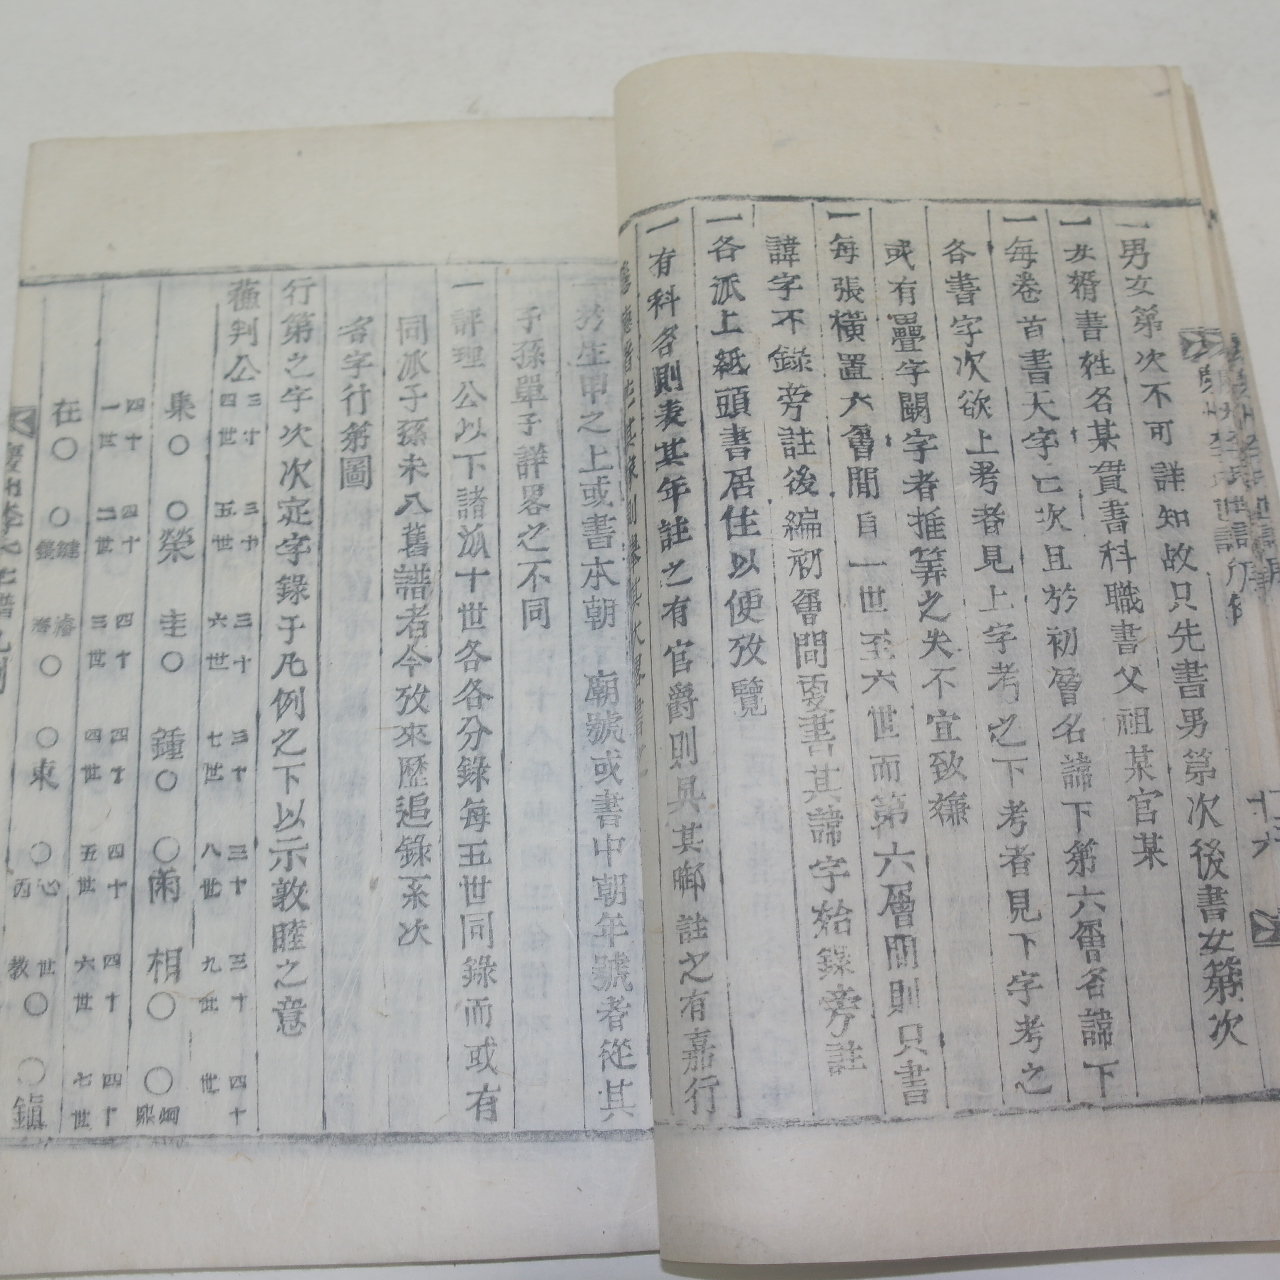 一男女第次不可詳知故只先書男第次後書女第次
一女壻書姓名某貫書科職書父祖某官某
一每卷首書大字亡次且於初層名諱下第六層名諱下
各書字次欲上考者見上字考之下考者見下字考之
或有疊字闕字者推筭之失不宜致嫌
一每張橫置六層間自一世至六世而第六層間則只書
諱字不錄旁註後編初層間更書其諱字始錄旁註
一各派上紙頭書居住以便攷覽
一有科名則表其年註之有官爵則具其啣註之有嘉行
十六
生甲之上或書本朝 廟號或書中朝年號者從其
子孫單子詳畧之不同
一評理公以下諸派十世各各分錄每五世同錄而或有
同派子孫未入舊譜者今攷來歷追錄系次
名字行第圖
行第之字次次定字錄于凡例之下以示敦睦之意
判公 三十四世 三十五世 三十六世 三十七世 三十八世 三十九世 四十世
集〇 〇榮 圭〇 鍾〇 〇雨 相〇 〇
四十一世 四十二世 四十三世 四十四世 四十五世 四十六世 四十七世
在〇 〇 〇 〇東 〇 心丙 世教〇 〇鎭